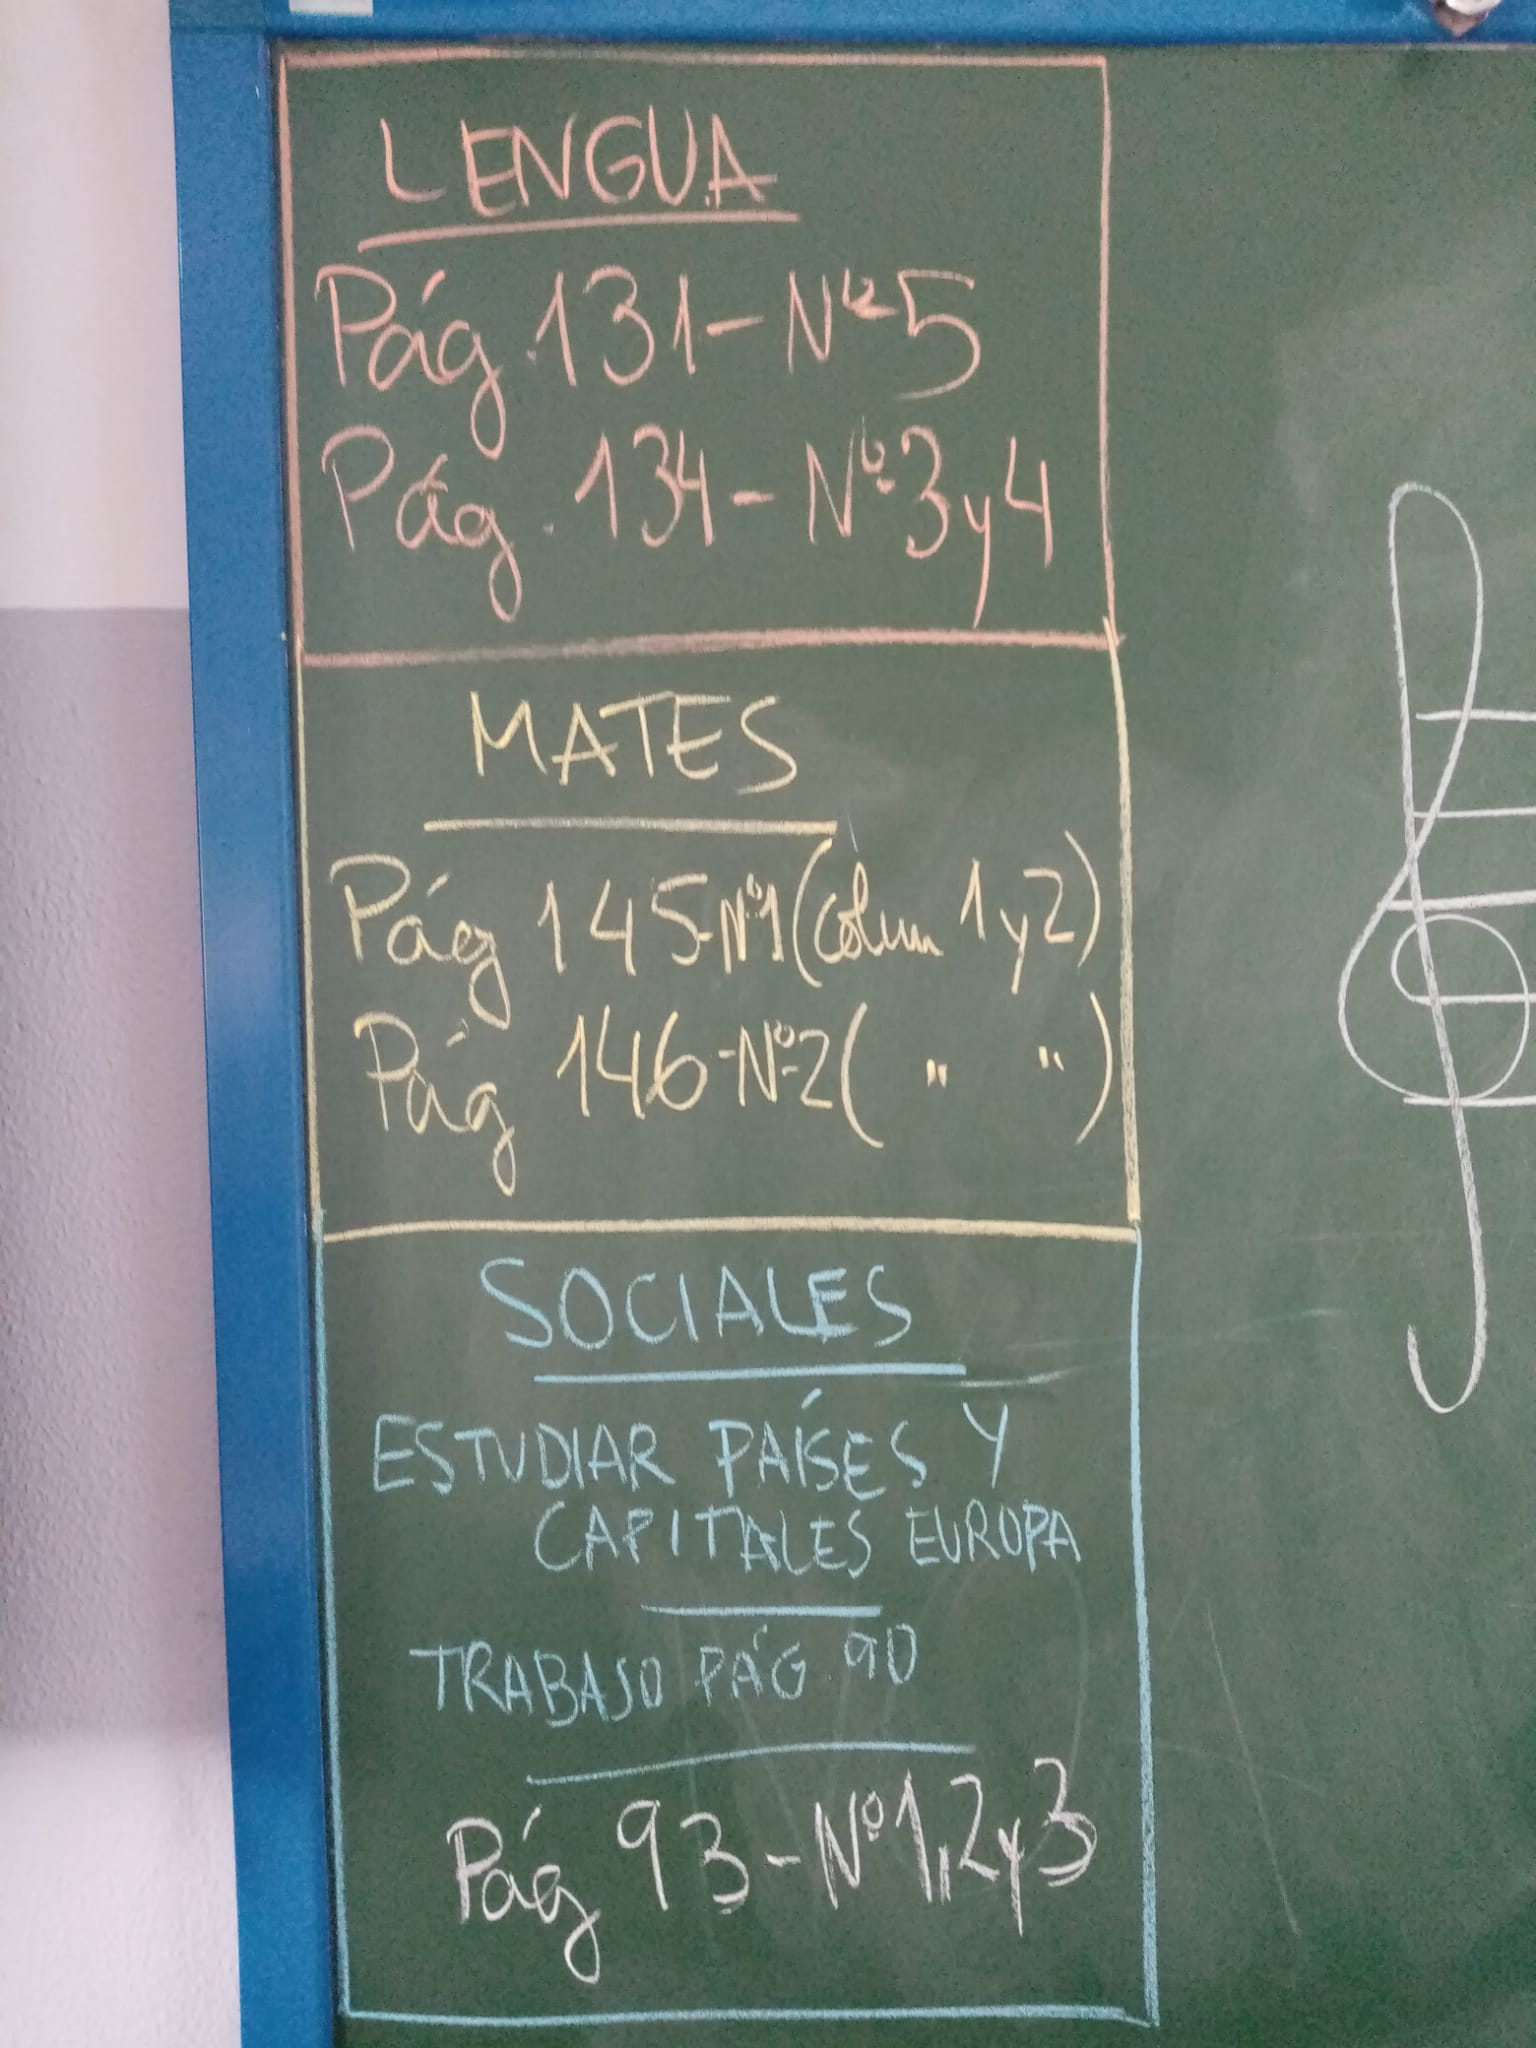 LENGUA
Pág. 131- Nº 5
Pág. 134- Nº 3 y 4
MATES
Pág 145-Nº1 (colum 1 y 2)
Pág 146-Nº2 ( " " )
SOCIALES
ESTUDIAR PAÍSES Y
CAPITALES EUROPA
TRABAJO PÁG 90
Pág 93-Nº1,2 y 3